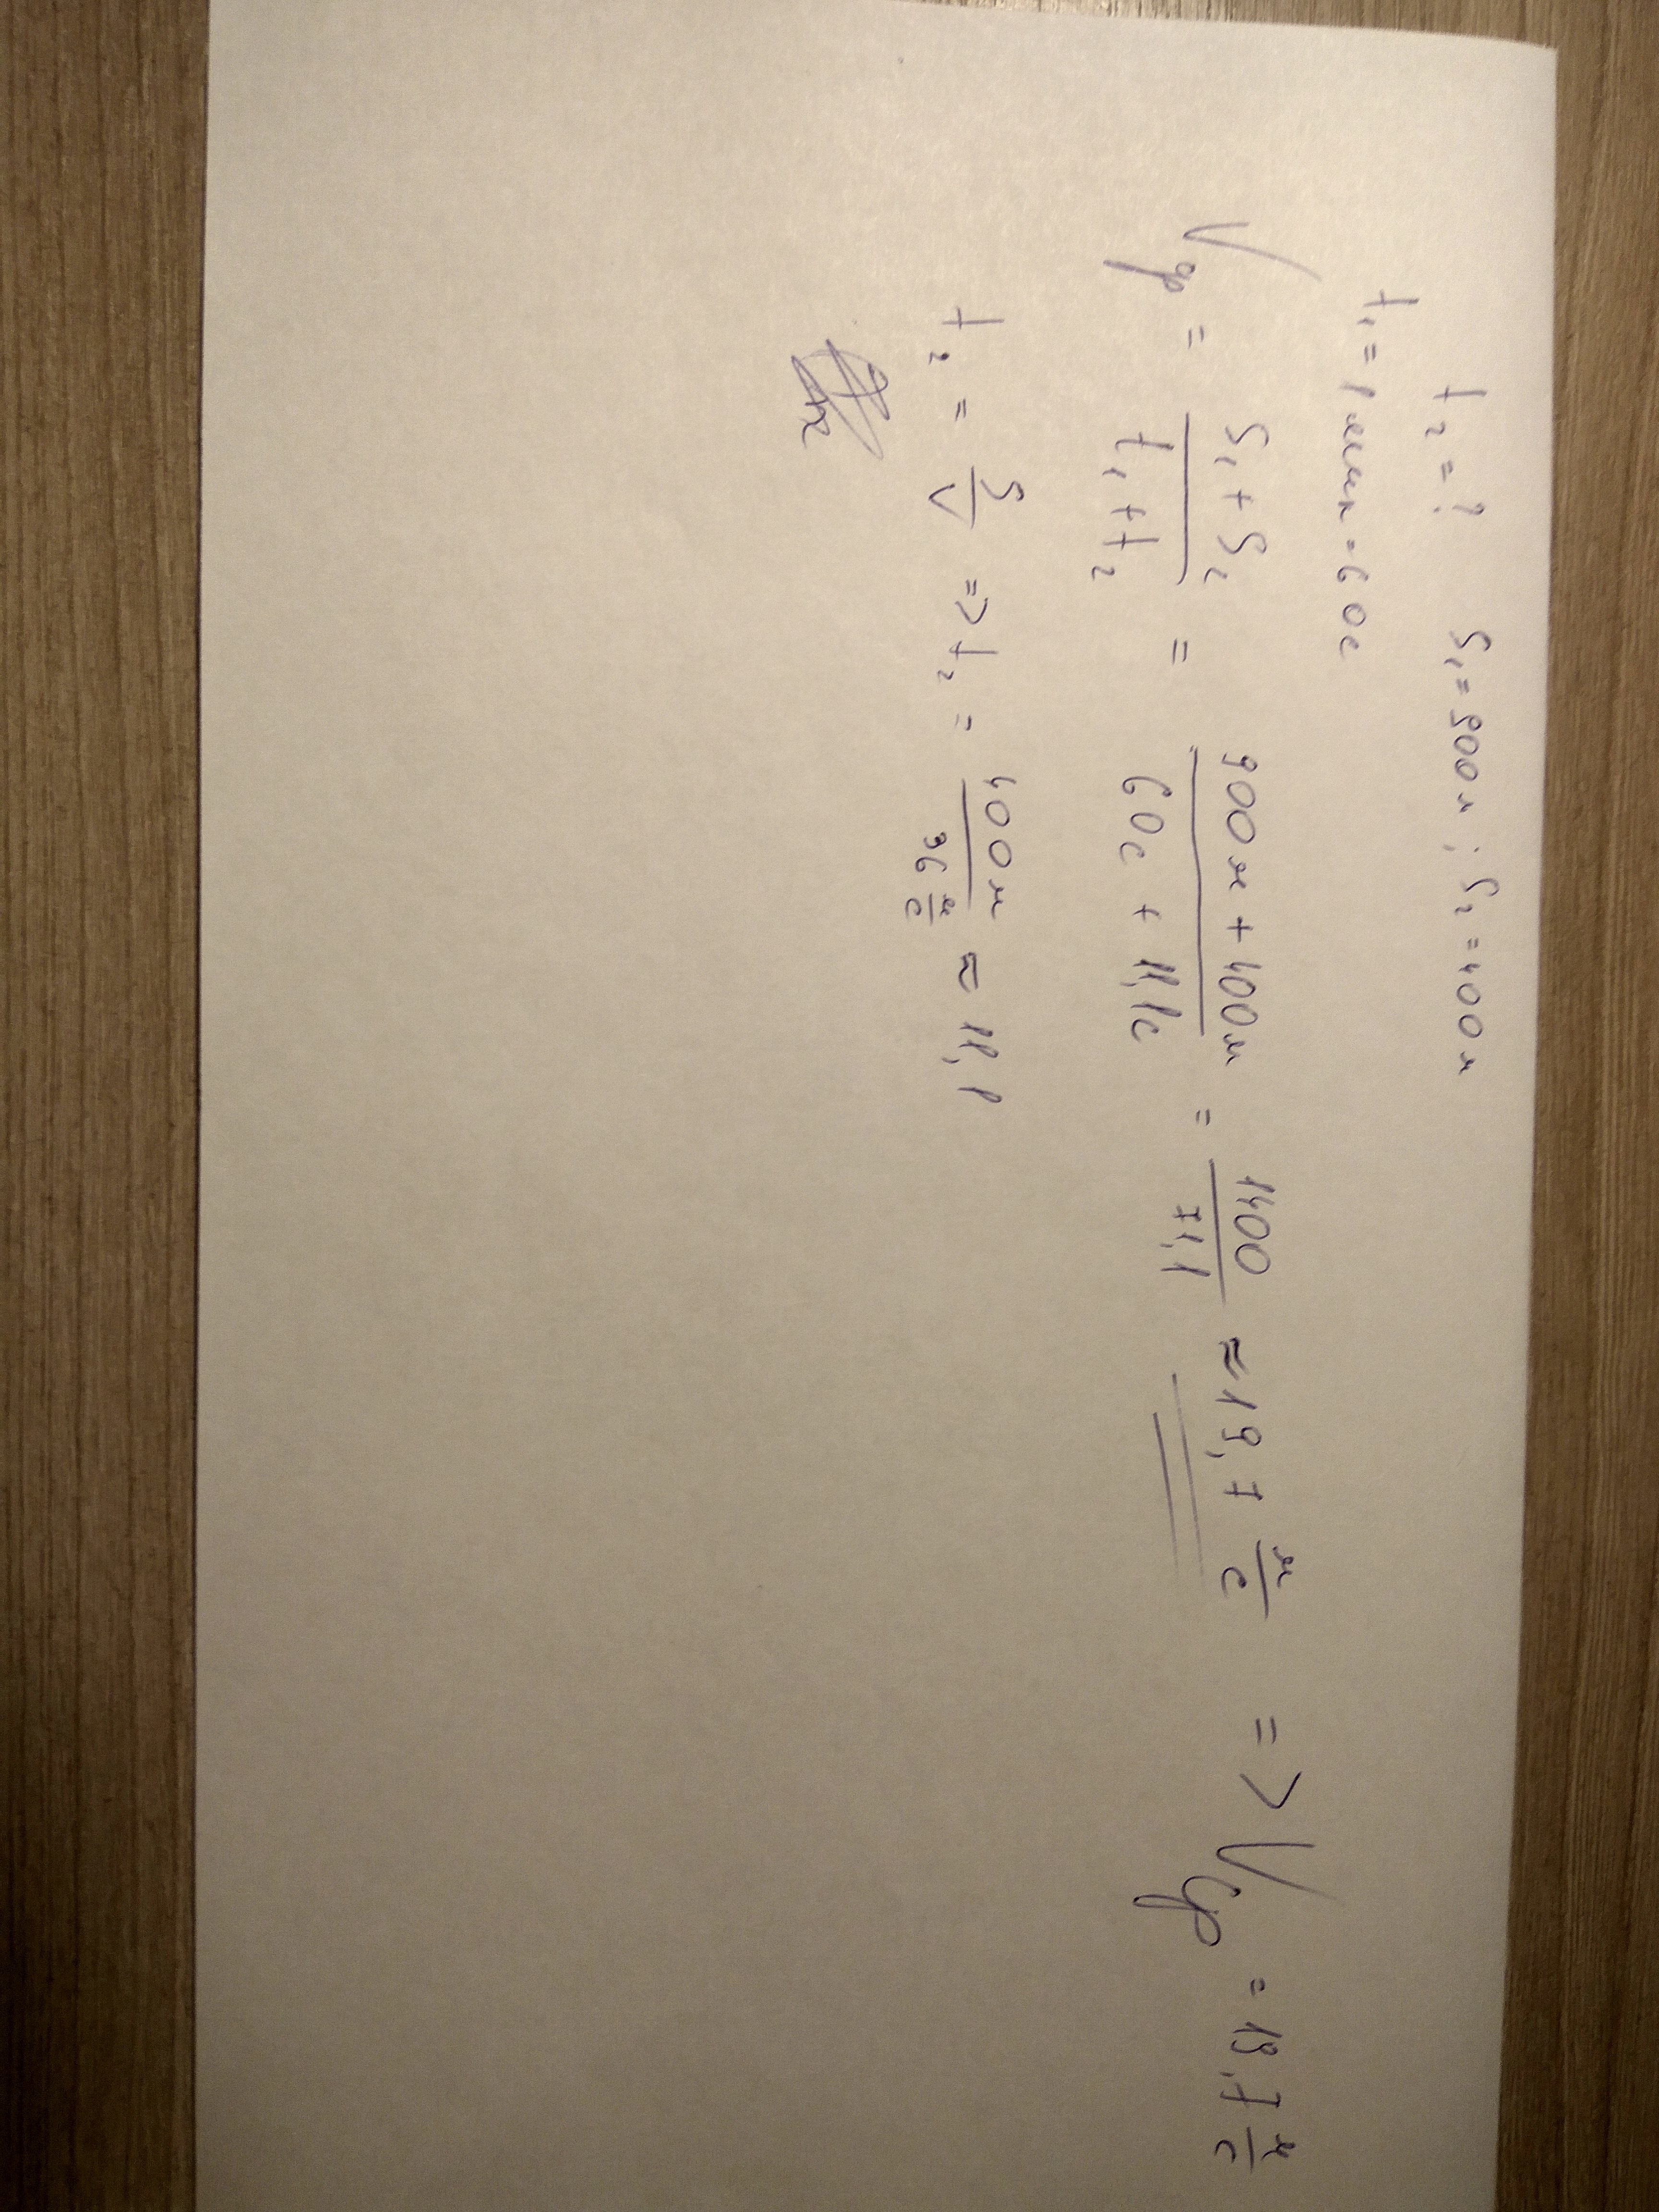 t₂ = ? S₁ = 900м ; S₂ = 400м
t₁ = 1 мин = 60с
Vср = (S₁ + S₂)/(t₁ + t₂) = (900м + 400м)/(60с + 11,1с) = 1400/71,1 ≈ 19,7 м/с => Vср = 19,7 м/с
t₂ = S/V => t₂ = 400м/(36 м/с) ≈ 11,1